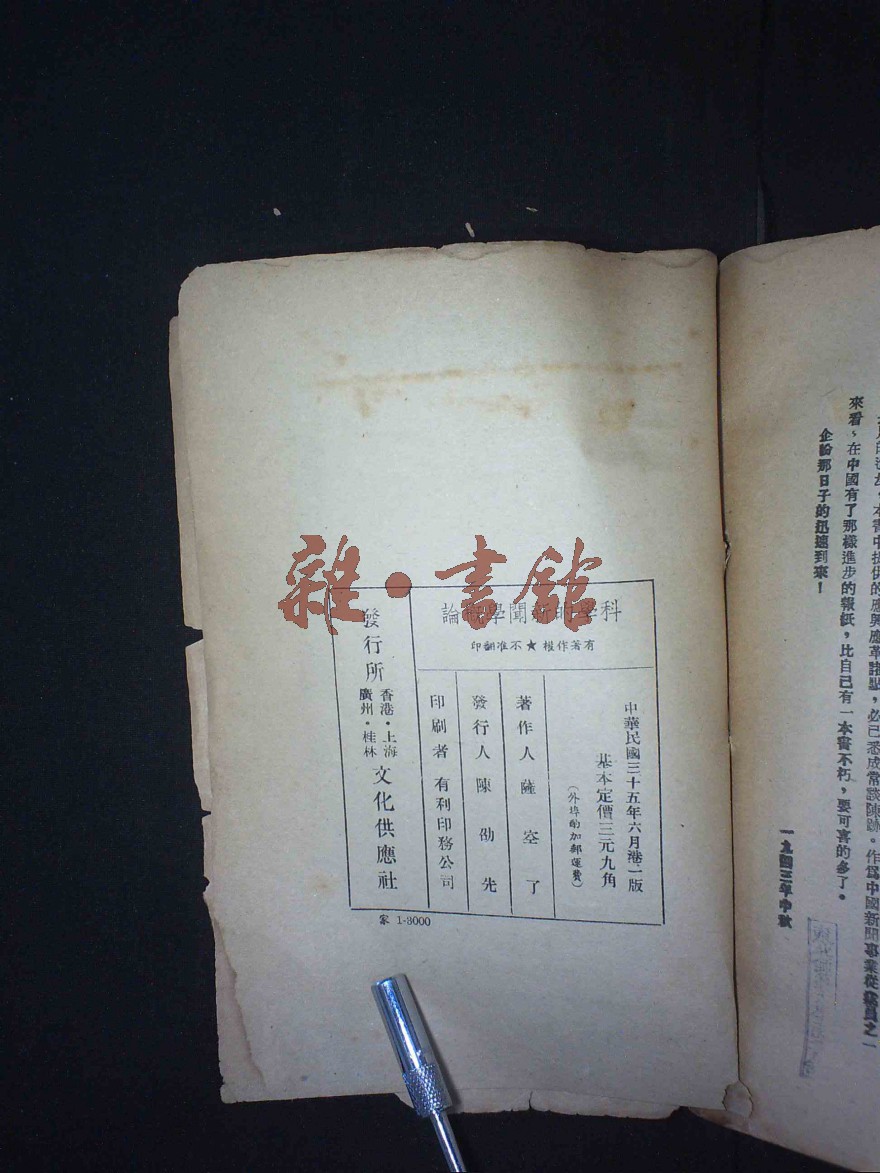 本書中提供的應興應革諸點，必已悉成常談陳跡。作爲中國新聞事業從業員之一
來看、在中國有了那樣進步的報紙，比自己有一本書不朽，要可喜的多了。
企盼那日子的迅速到來！
一九四三年中秋
科學的新聞學概論
有著作權★不准翻印
中華民國三十五年六月港一版
基本定價三元九角
（外埠酌加郵運費）
著作人 薩空了
發行人 陳劭先
印刷者 有利印務公司
發行所 香港·上海 廣州·桂林 文化供應社
家 1-3000
雜·書館